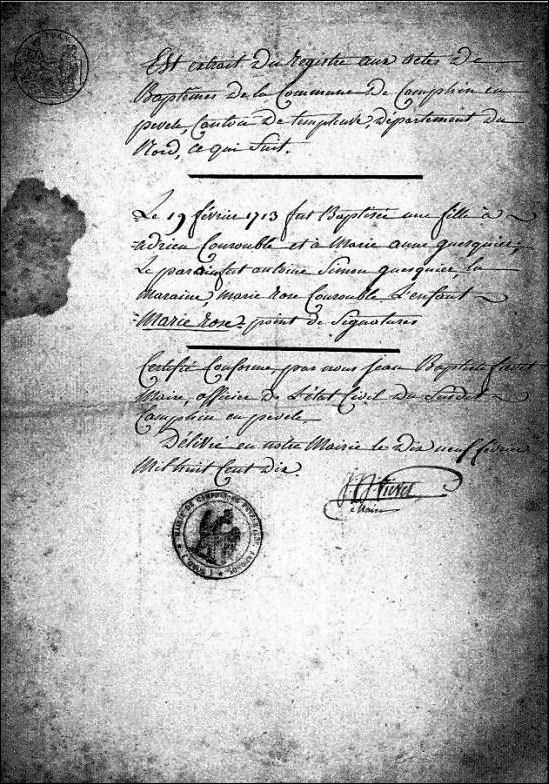 Est extrait du registre aux actes de
Baptêmes de la Commune de Camphin en
pevele, Canton de templeuve, département du
Nord, ce qui suit.
Le 19 février 1713 fut Baptisée une fille à
adrien Courouble et à Marie anne guesquier,
Le parain fut antoine Simon guesquier, la
Maraine, Marie Rose Courouble L'enfant
Marie Rose. point de Signatures
Certifié Conforme, par nous jean Baptiste
Maire, officier de L'état Civil du Susdit
Camphin en pevele,
Délivré en notre Mairie le Dix neuf février
Mil huit Cent Dix.
Maire
MAIRIE DE CAMPHIN EN